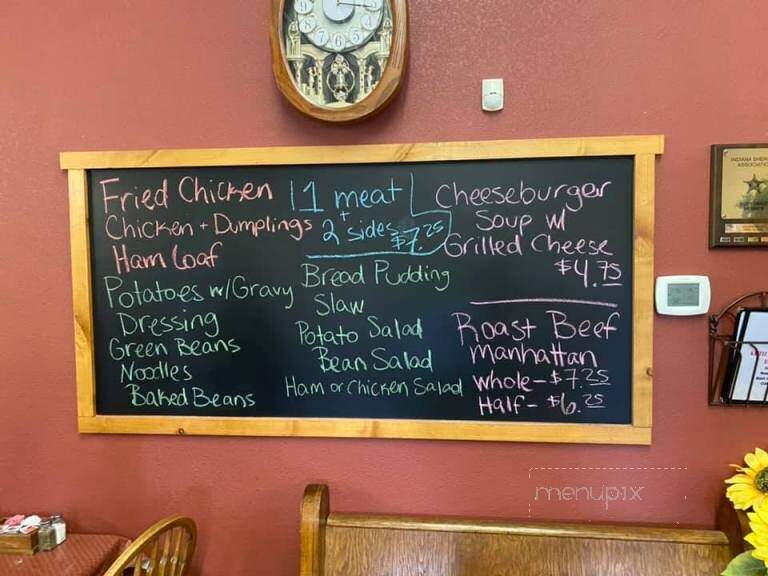 Fried Chicken
Chicken + Dumplings
Ham Loaf
Potatoes w/Gravy
Dressing
Green Beans
Noodles
Baked Beans
1 meat
+
2 sides
$7.25
Bread Pudding
Slaw
Potato Salad
Bean Salad
Ham or Chicken Salad
Cheeseburger
Soup w/
Grilled Cheese
$4.75
Roast Beef
Manhattan
Whole - $7.25
Half - $6.25
INDIANA SHERIFFS'
ASSOCIATION
menupix